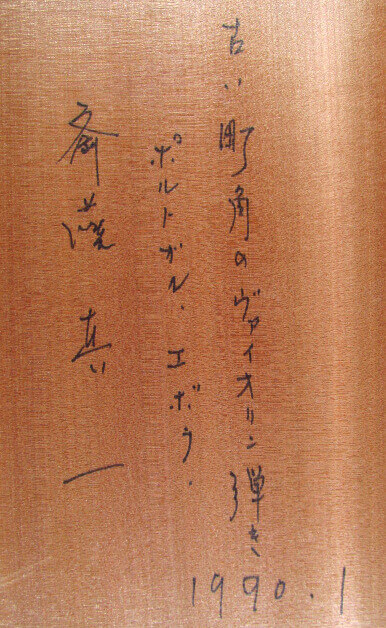 古い町角のヴァイオリン弾き
ポルトガル・エボラ・
斎藤真一
1990.1